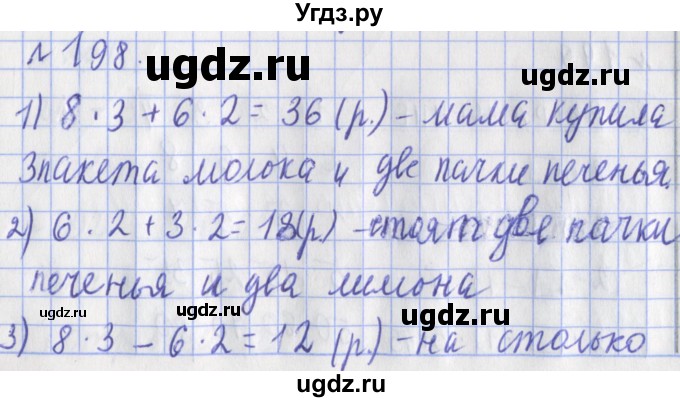 Угдз.ру
№198.
1) 8·3+6·2=36(р.)-мама купила
3пакета молока и две пачки печенья.
2) 6·2+3·2=18(р)-стоят две пачки
печенья и два лимона
3) 8·3-6·2=12(р.)-на столько
ugdz.ru
ugdz.ru
ugdz.ru
ugdz.ru
ugdz.ru
ugdz.ru
ugdz.ru
ugdz.ru
ugdz.ru